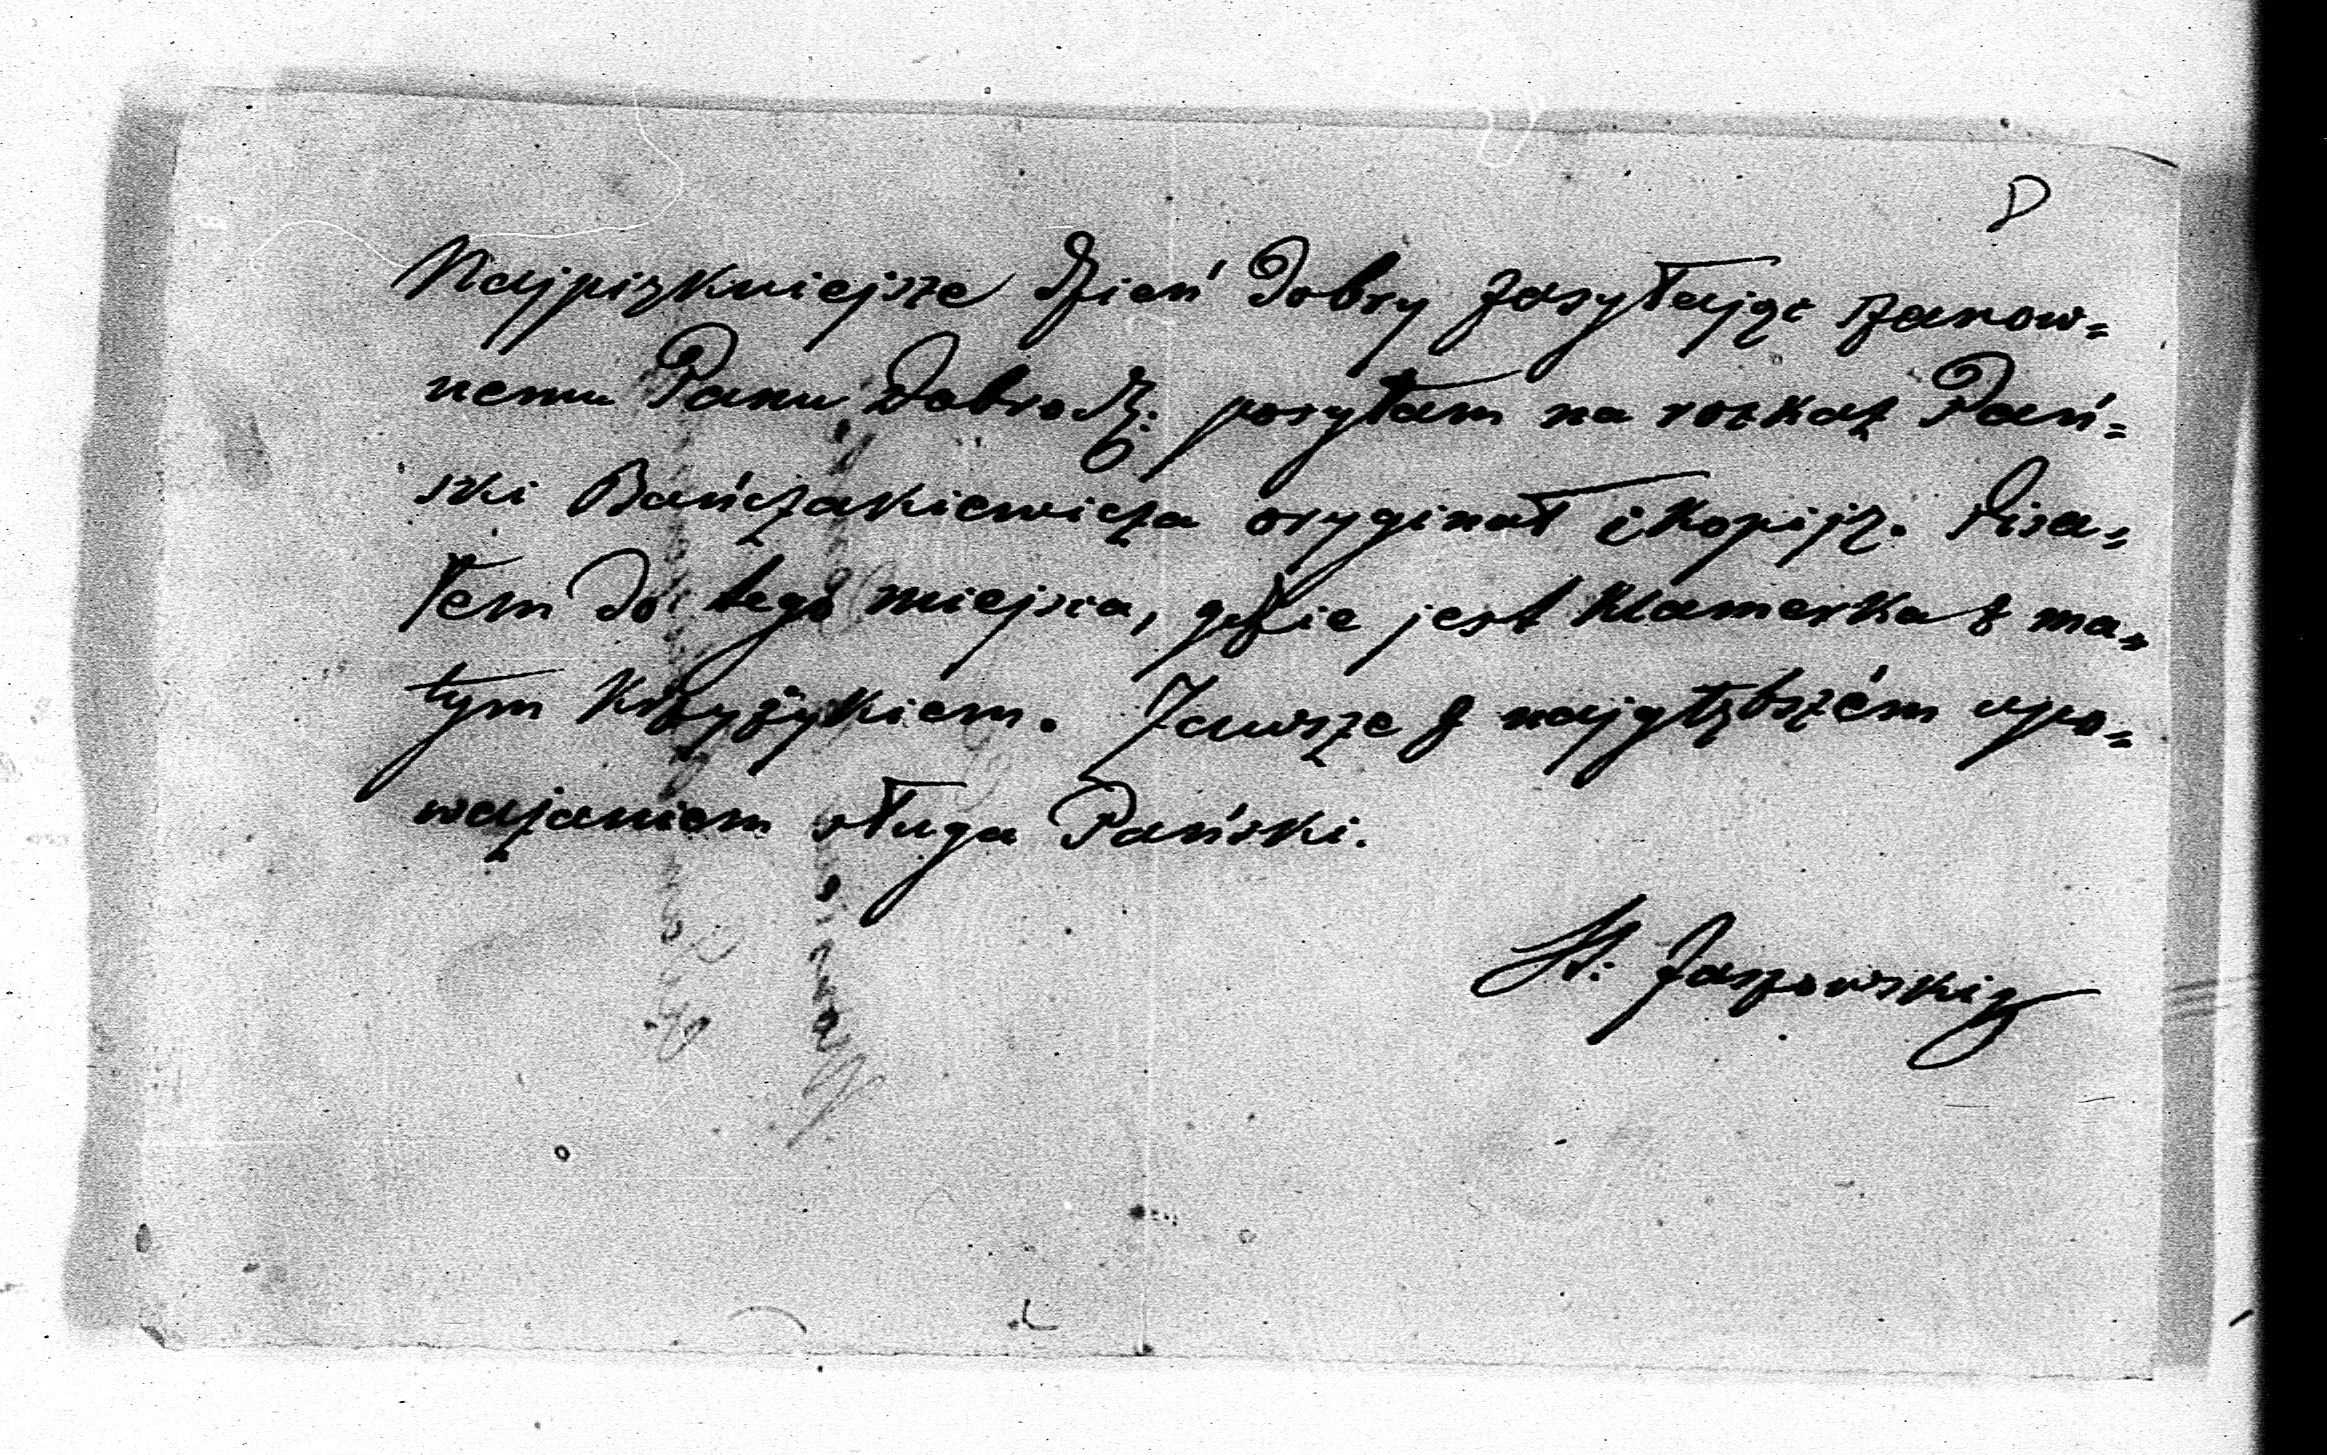 Najpiękniejsze dzień dobry zasyłając szanow=
nemu Panu Dobrodz. posyłam na rozkaz Pań=
ski Bańczakiewicza oryginał i kopiję. Pisa=
łem do tego miejsca, gdzie jest klamerka z ma=
łym krzyżykiem. Zawsze z najgłębszém upo=
ważaniem sługa Pański.
St. Jaszowski